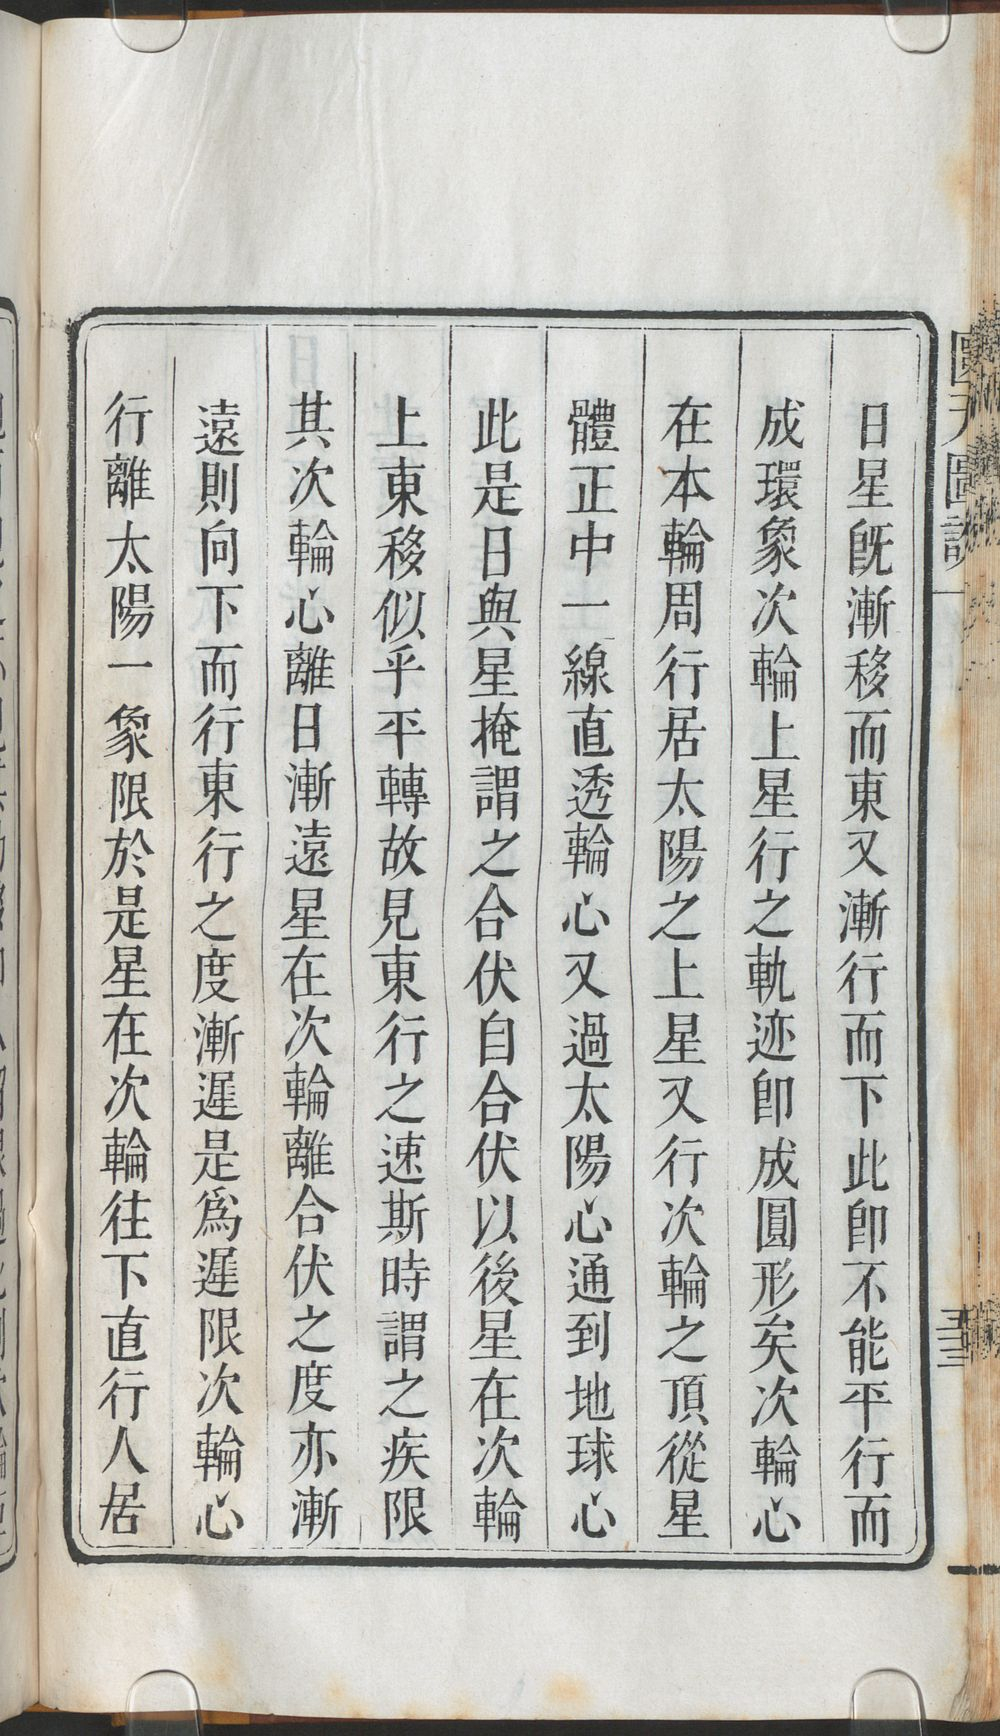 日星旣漸移而東又漸行而下此卽不能平行而
成環象次輪上星行之軌迹卽成圓形矣次輪心
在本輪周行居太陽之上星又行次輪之頂從星
體正中一線直透輪心又過太陽心通到地球心
此是日與星掩謂之合伏自合伏以後星在次輪
上東移似乎平轉故見東行之速斯時謂之疾限
其次輪心離日漸遠星在次輪離合伏之度亦漸
遠則向下而行東行之度漸遲是爲遲限次輪心
行離太陽一象限於是星在次輪往下直行人居